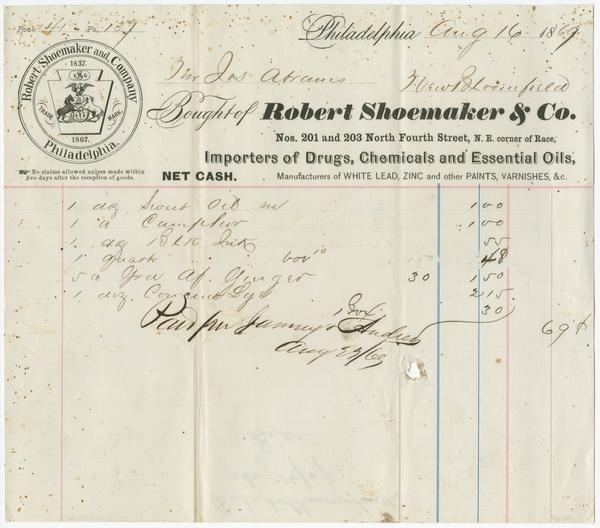 Book 41 Fo. 137
Philadelphia Aug 16 1869
Robert Shoemaker and Company
1837.
TRADE MARK.
1867.
Philadelphia.
Mr Jos Abrams New Bloomfield
Bought of Robert Shoemaker & Co.
Nos. 201 and 203 North Fourth Street, N. E. corner of Race,
Importers of Drugs, Chemicals and Essential Oils,
NET CASH. Manufacturers of WHITE LEAD, ZINC and other PAINTS, VARNISHES, &c.
No claims allowed unless made within
five days after the reception of goods.
1 dz Sweet Oil 1 00
1 lb Camphor 1 00
1 dz Ink 55
1 quart box 10 48
5 lb Gro Af. Ginger 30 1 50
1 doz Concent Lye 2 15
1 Box 30
Paid per Andrew 69
Aug 23/69